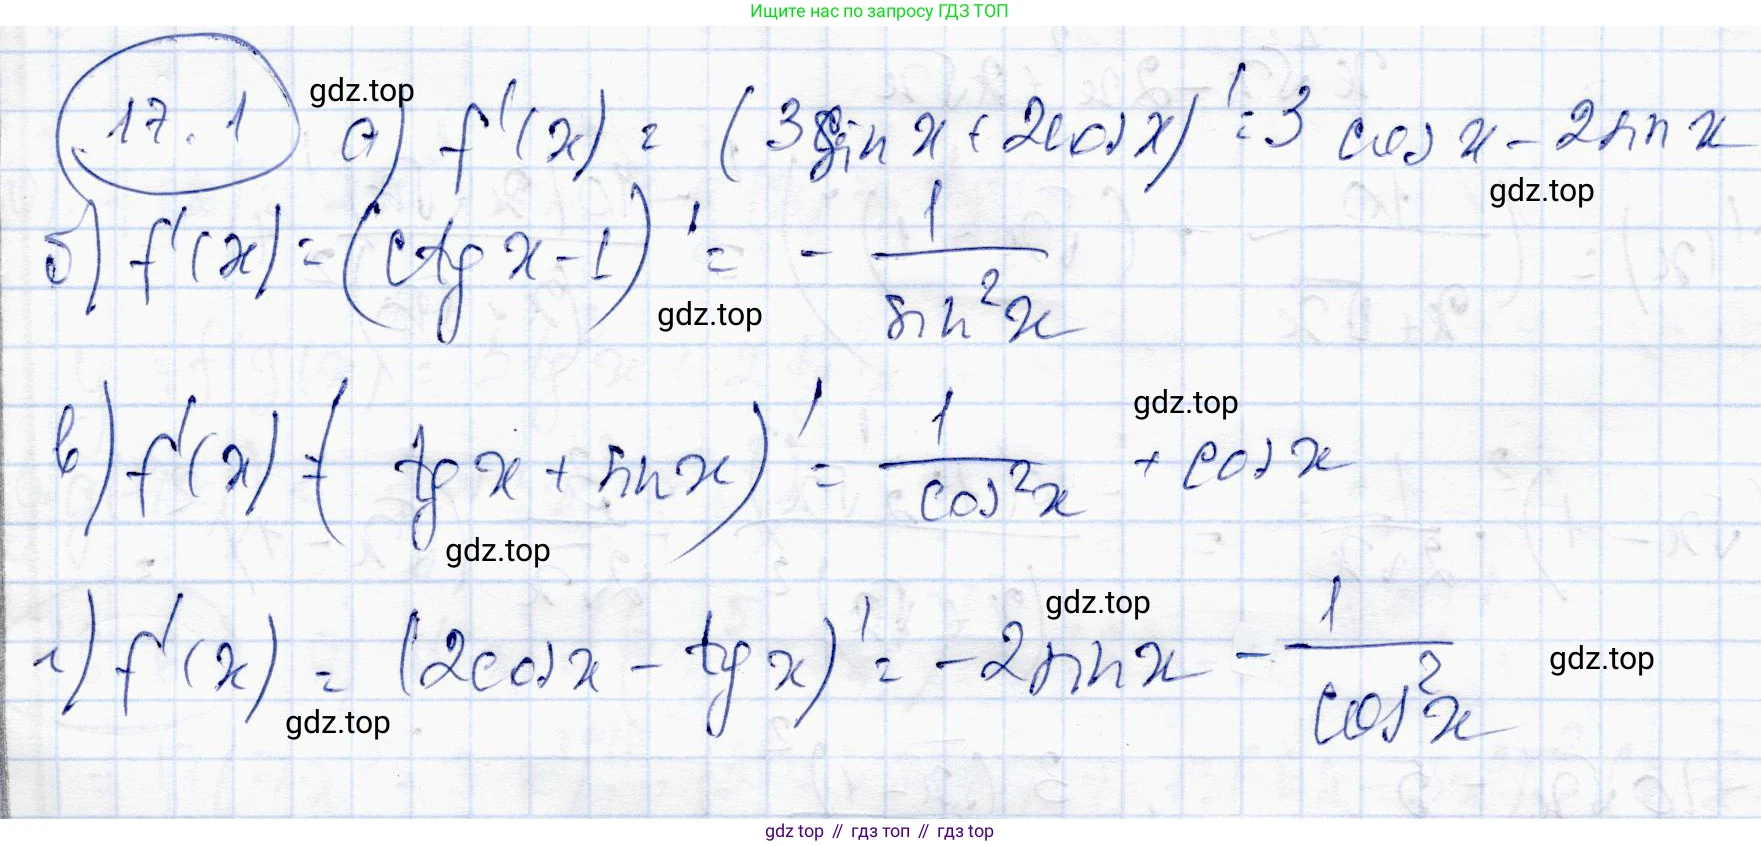 Ищите нас по запросу ГДЗ ТОП
17.1 gdz.top а) f'(x) = (3sin x + 2cos x)' = 3 cos x - 2sin x
gdz.top
б) f'(x) = (ctg x - 1)' = - 1/sin²x
gdz.top
в) f'(x) = (tg x + sin x)' = 1/cos²x + cos x
gdz.top
gdz.top
г) f'(x) = (2cos x - tg x)' = -2sin x - 1/cos²x
gdz.top
gdz.top
gdz.top
gdz top // гдз топ // гдз top